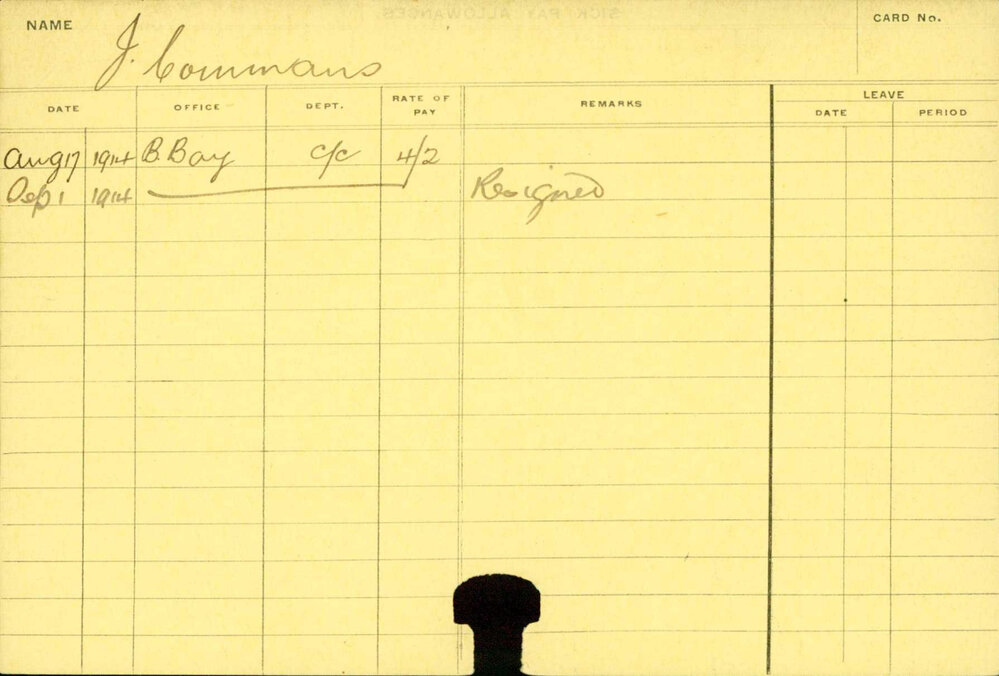 SICK PAY ALLOWANCES
NAME J. Commans CARD No.
DATE OFFICE DEPT. RATE OF PAY REMARKS LEAVE DATE PERIOD
Aug 17 1914 B. Bay c/c 4/2
Sep 1 1914 Resigned